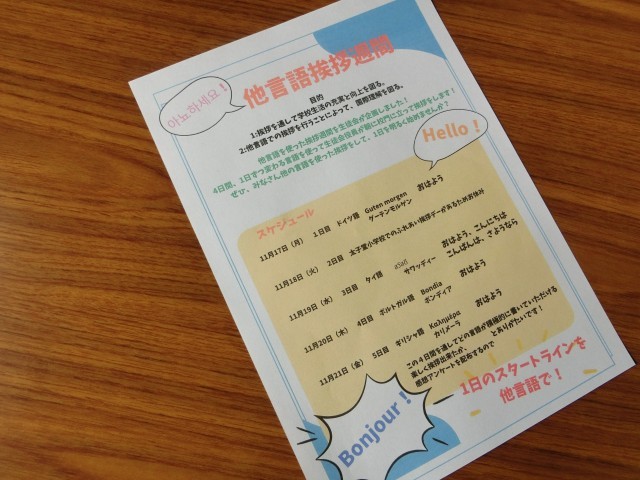 안녕하세요!
他言語挨拶週間
目的
1:挨拶を通して学校生活の充実と向上を図る。
2:他言語での挨拶を行うことによって、国際理解を図る。
他言語を使った挨拶週間を生徒会が企画しました!
4日間、1日ずつ変わる言語を使って生徒会役員が朝に校門に立って挨拶をします!
ぜひ、みなさん他の言語を使った挨拶をして、1日を明るく始めませんか?
Hello!
スケジュール
11月17日(月) 1日目 ドイツ語 Guten morgen おはよう
グーテンモルゲン
11月18日(火) 2日目 太子堂小学校でのふれあい挨拶デーがあるためお休み
11月19日(水) 3日目 タイ語 สวัสดี おはよう、こんにちは
サワッディー こんばんは、さようなら
11月20日(木) 4日目 ポルトガル語 Bondia おはよう
ボンディア
11月21日(金) 5日目 ギリシャ語 Καλημέρα おはよう
カリメーラ
この4日間を通してどの言語が積極的に書いていただける
楽しく挨拶出来たか、 とありがたいです!
感想アンケートを配布するので
Bonjour!
1日のスタートラインを
他言語で!